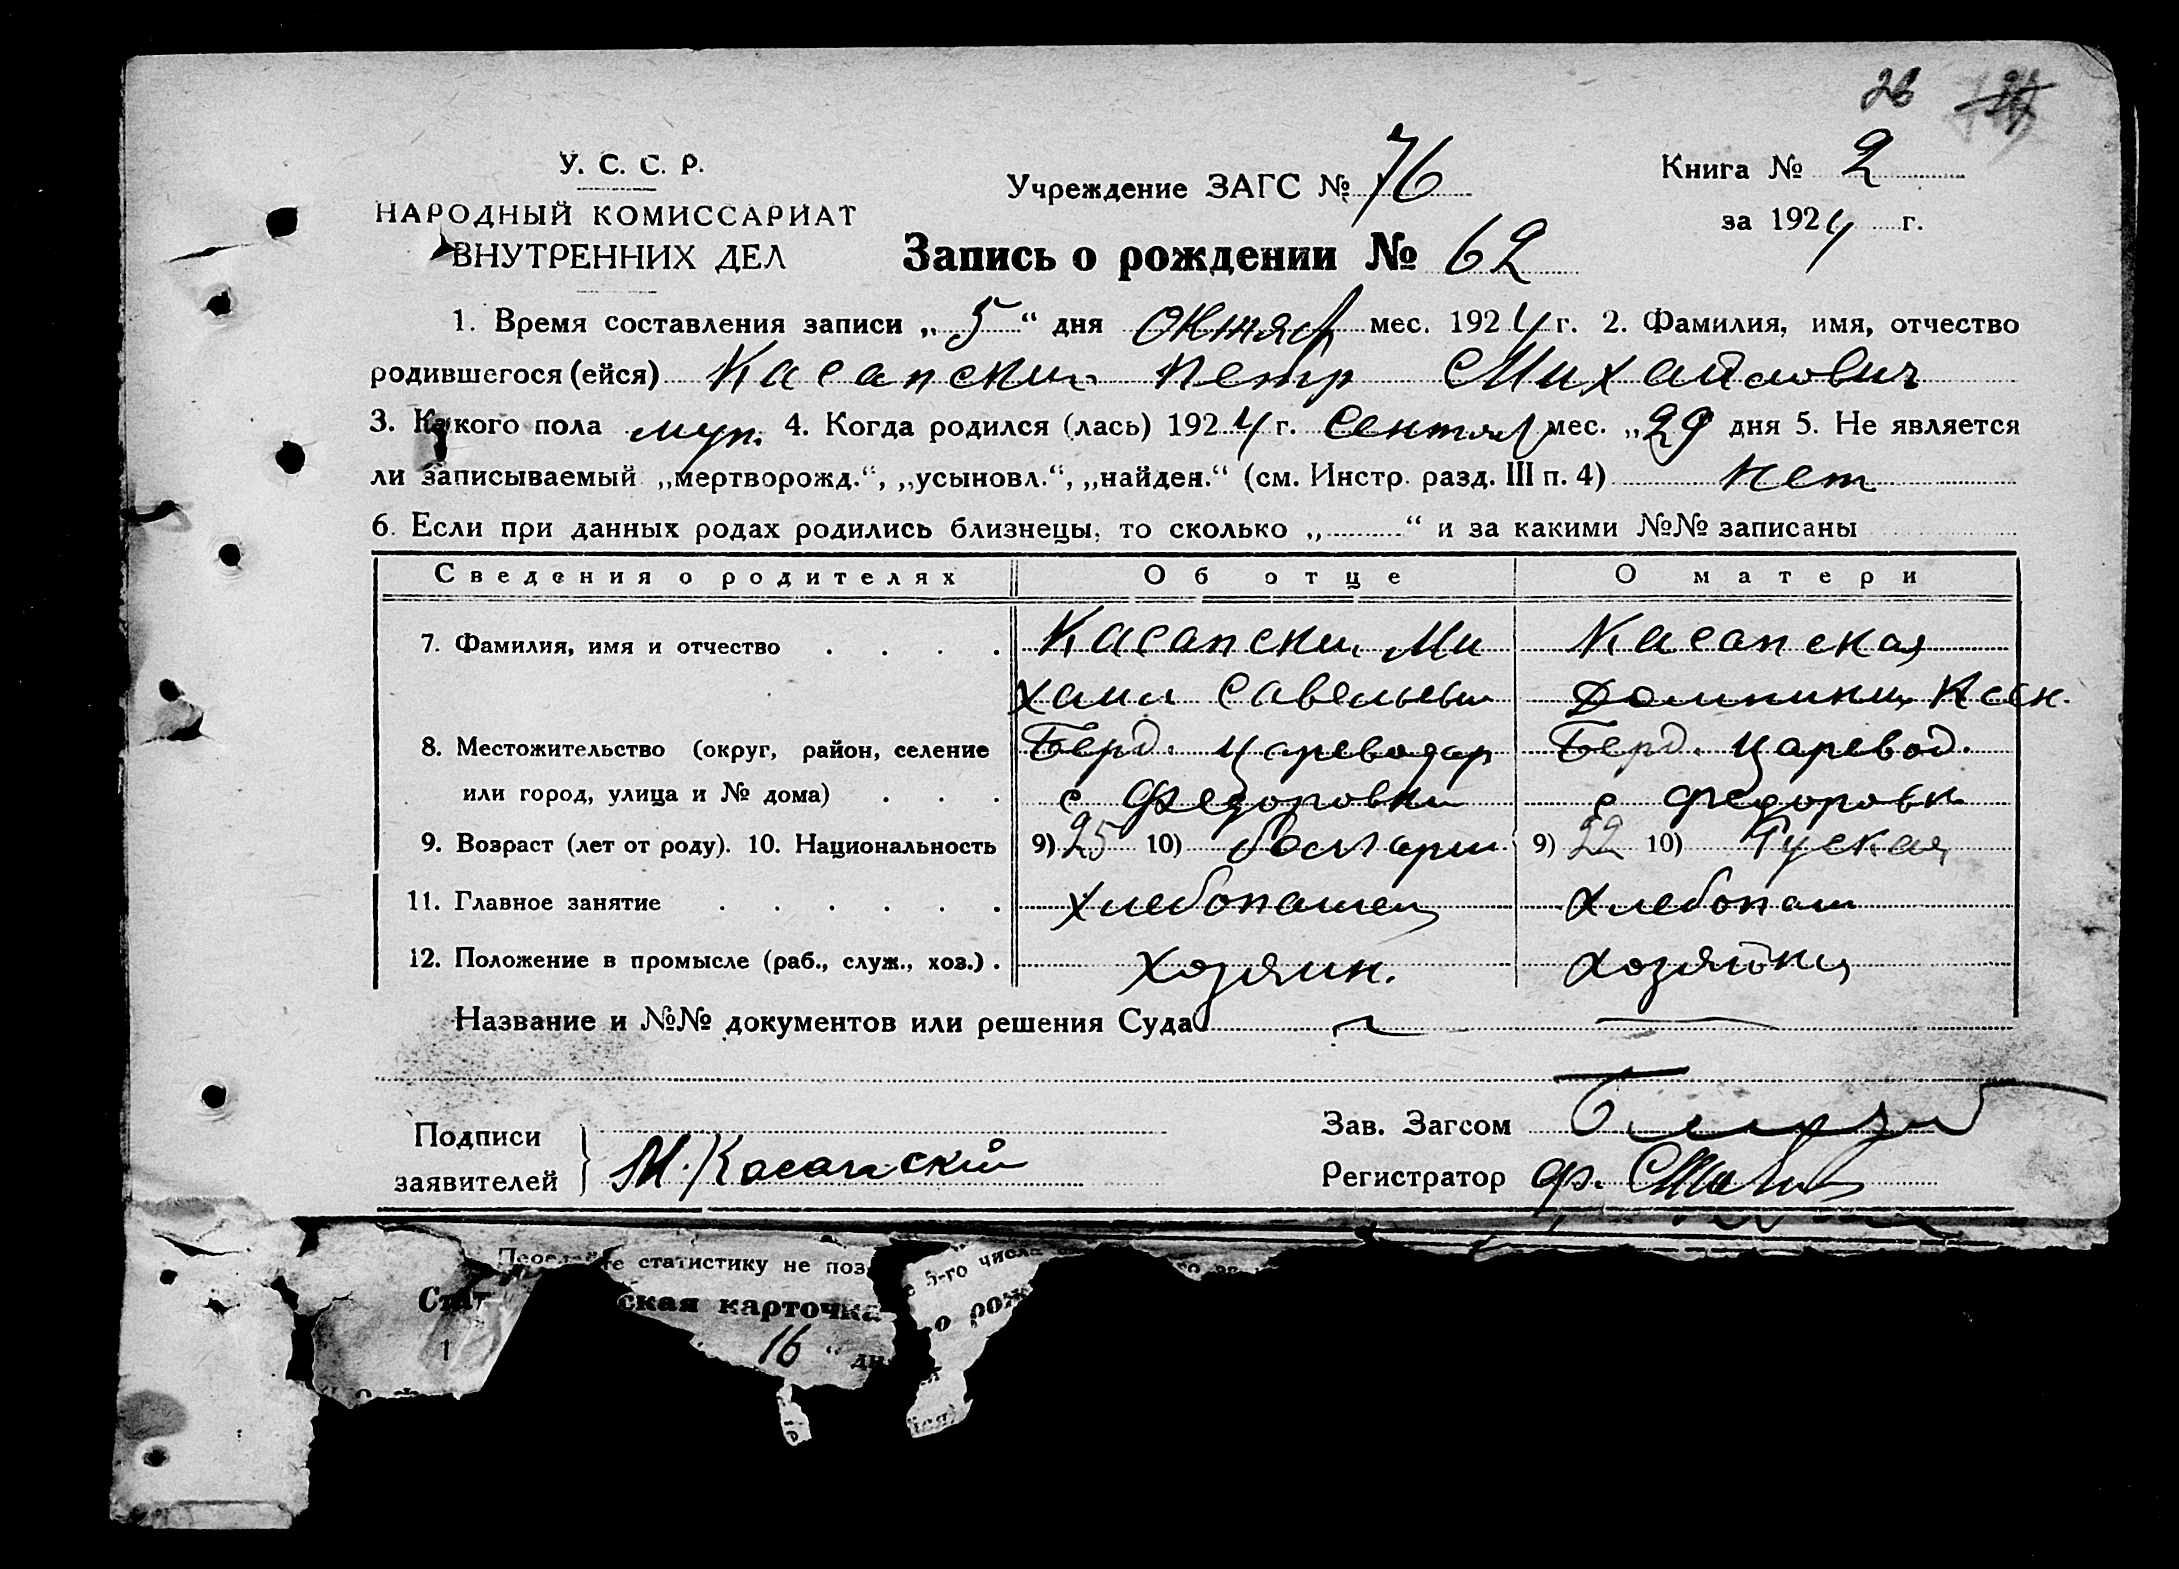 26
У. С. С. Р.
НАРОДНЫЙ КОМИССАРИАТ
ВНУТРЕННИХ ДЕЛ
Учреждение ЗАГС № 76
Книга № 2
за 1924 г.
Запись о рождении № 62
1. Время составления записи „5“ дня октяб мес. 1924 г. 2. Фамилия, имя, отчество
родившегося (ейся) Касапски Петр Михайлович
3. Какого пола муж. 4. Когда родился (лась) 1924 г. Сентяб мес. „29 дня 5. Не является
ли записываемый „мертворожд.“, „усыновл.“, „найден.“ (см. Инстр. разд. III п. 4) нет
6. Если при данных родах родились близнецы, то сколько „ “ и за какими №№ записаны
Сведения о родителях Об отце О матери
7. Фамилия, имя и отчество Касапски Ми Касапская
хаил Савельев Домникия
8. Местожительство (округ, район, селение Берд. Цареводар Берд. Царевод.
или город, улица и № дома) с Федоровки с Федоровк
9. Возраст (лет от роду). 10. Национальность 9) 25 10) болгарин 9) 22 10) Руская
11. Главное занятие Хлебопашец Хлебопаш
12. Положение в промысле (раб., служ., хоз.) Хозяин. Хозяйка
Название и №№ документов или решения Суда
Подписи
заявителей М. Касапский
Зав. Загсом
Регистратор
статистику не поз
5-го числа
Стат ская карточка
о рож
1 16 “ дн